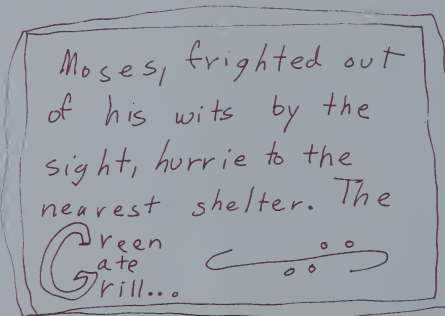 Moses, frighted out
of his wits by the
sight, hurrie to the
nearest shelter. The
Green
Gate
Grill...